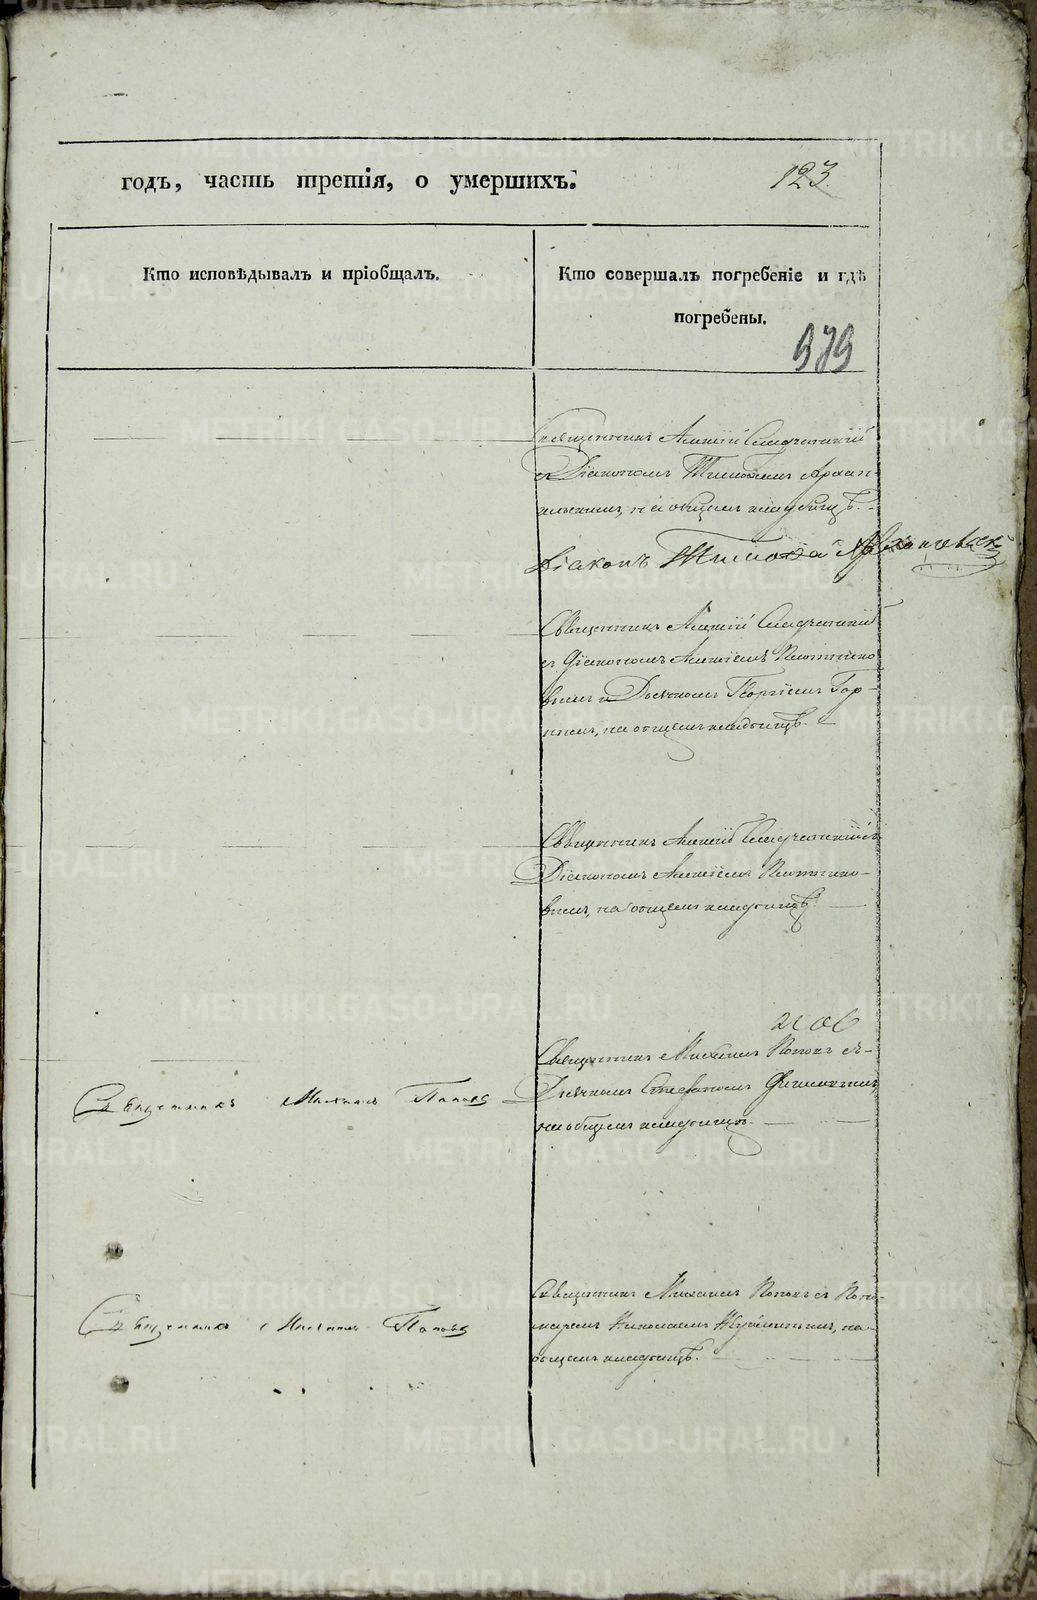 годъ, часть третія, о умершихъ.
123.
Кто исповѣдывалъ и пріобщалъ.
Кто совершалъ погребеніе и гдѣ
погребены.
979
Священникъ Алексій
съ Діакономъ Тимоѳеемъ Архан
гельскимъ, на общемъ кладбищѣ.
Діаконъ Тимоѳей Архангельскій
Священникъ Алексій
съ Діакономъ Алексіемъ Плотнико
вымъ и Дьячкомъ Георгіемъ Гор-
нымъ, на общемъ кладбищѣ.
Священникъ Алексій
Діакономъ Алексіемъ Плотнико-
вымъ, на общемъ кладбищѣ.
Священникъ Михаилъ Поповъ съ
Дьячкомъ Стефаномъ
на общемъ кладбищѣ.
Священникъ Михаилъ Поповъ
Священникъ Михаилъ Поповъ съ Поно-
маремъ Николаемъ на
общемъ кладбищѣ.
Священникъ Михаилъ Поповъ
METRIKI.GASO-URAL.RU